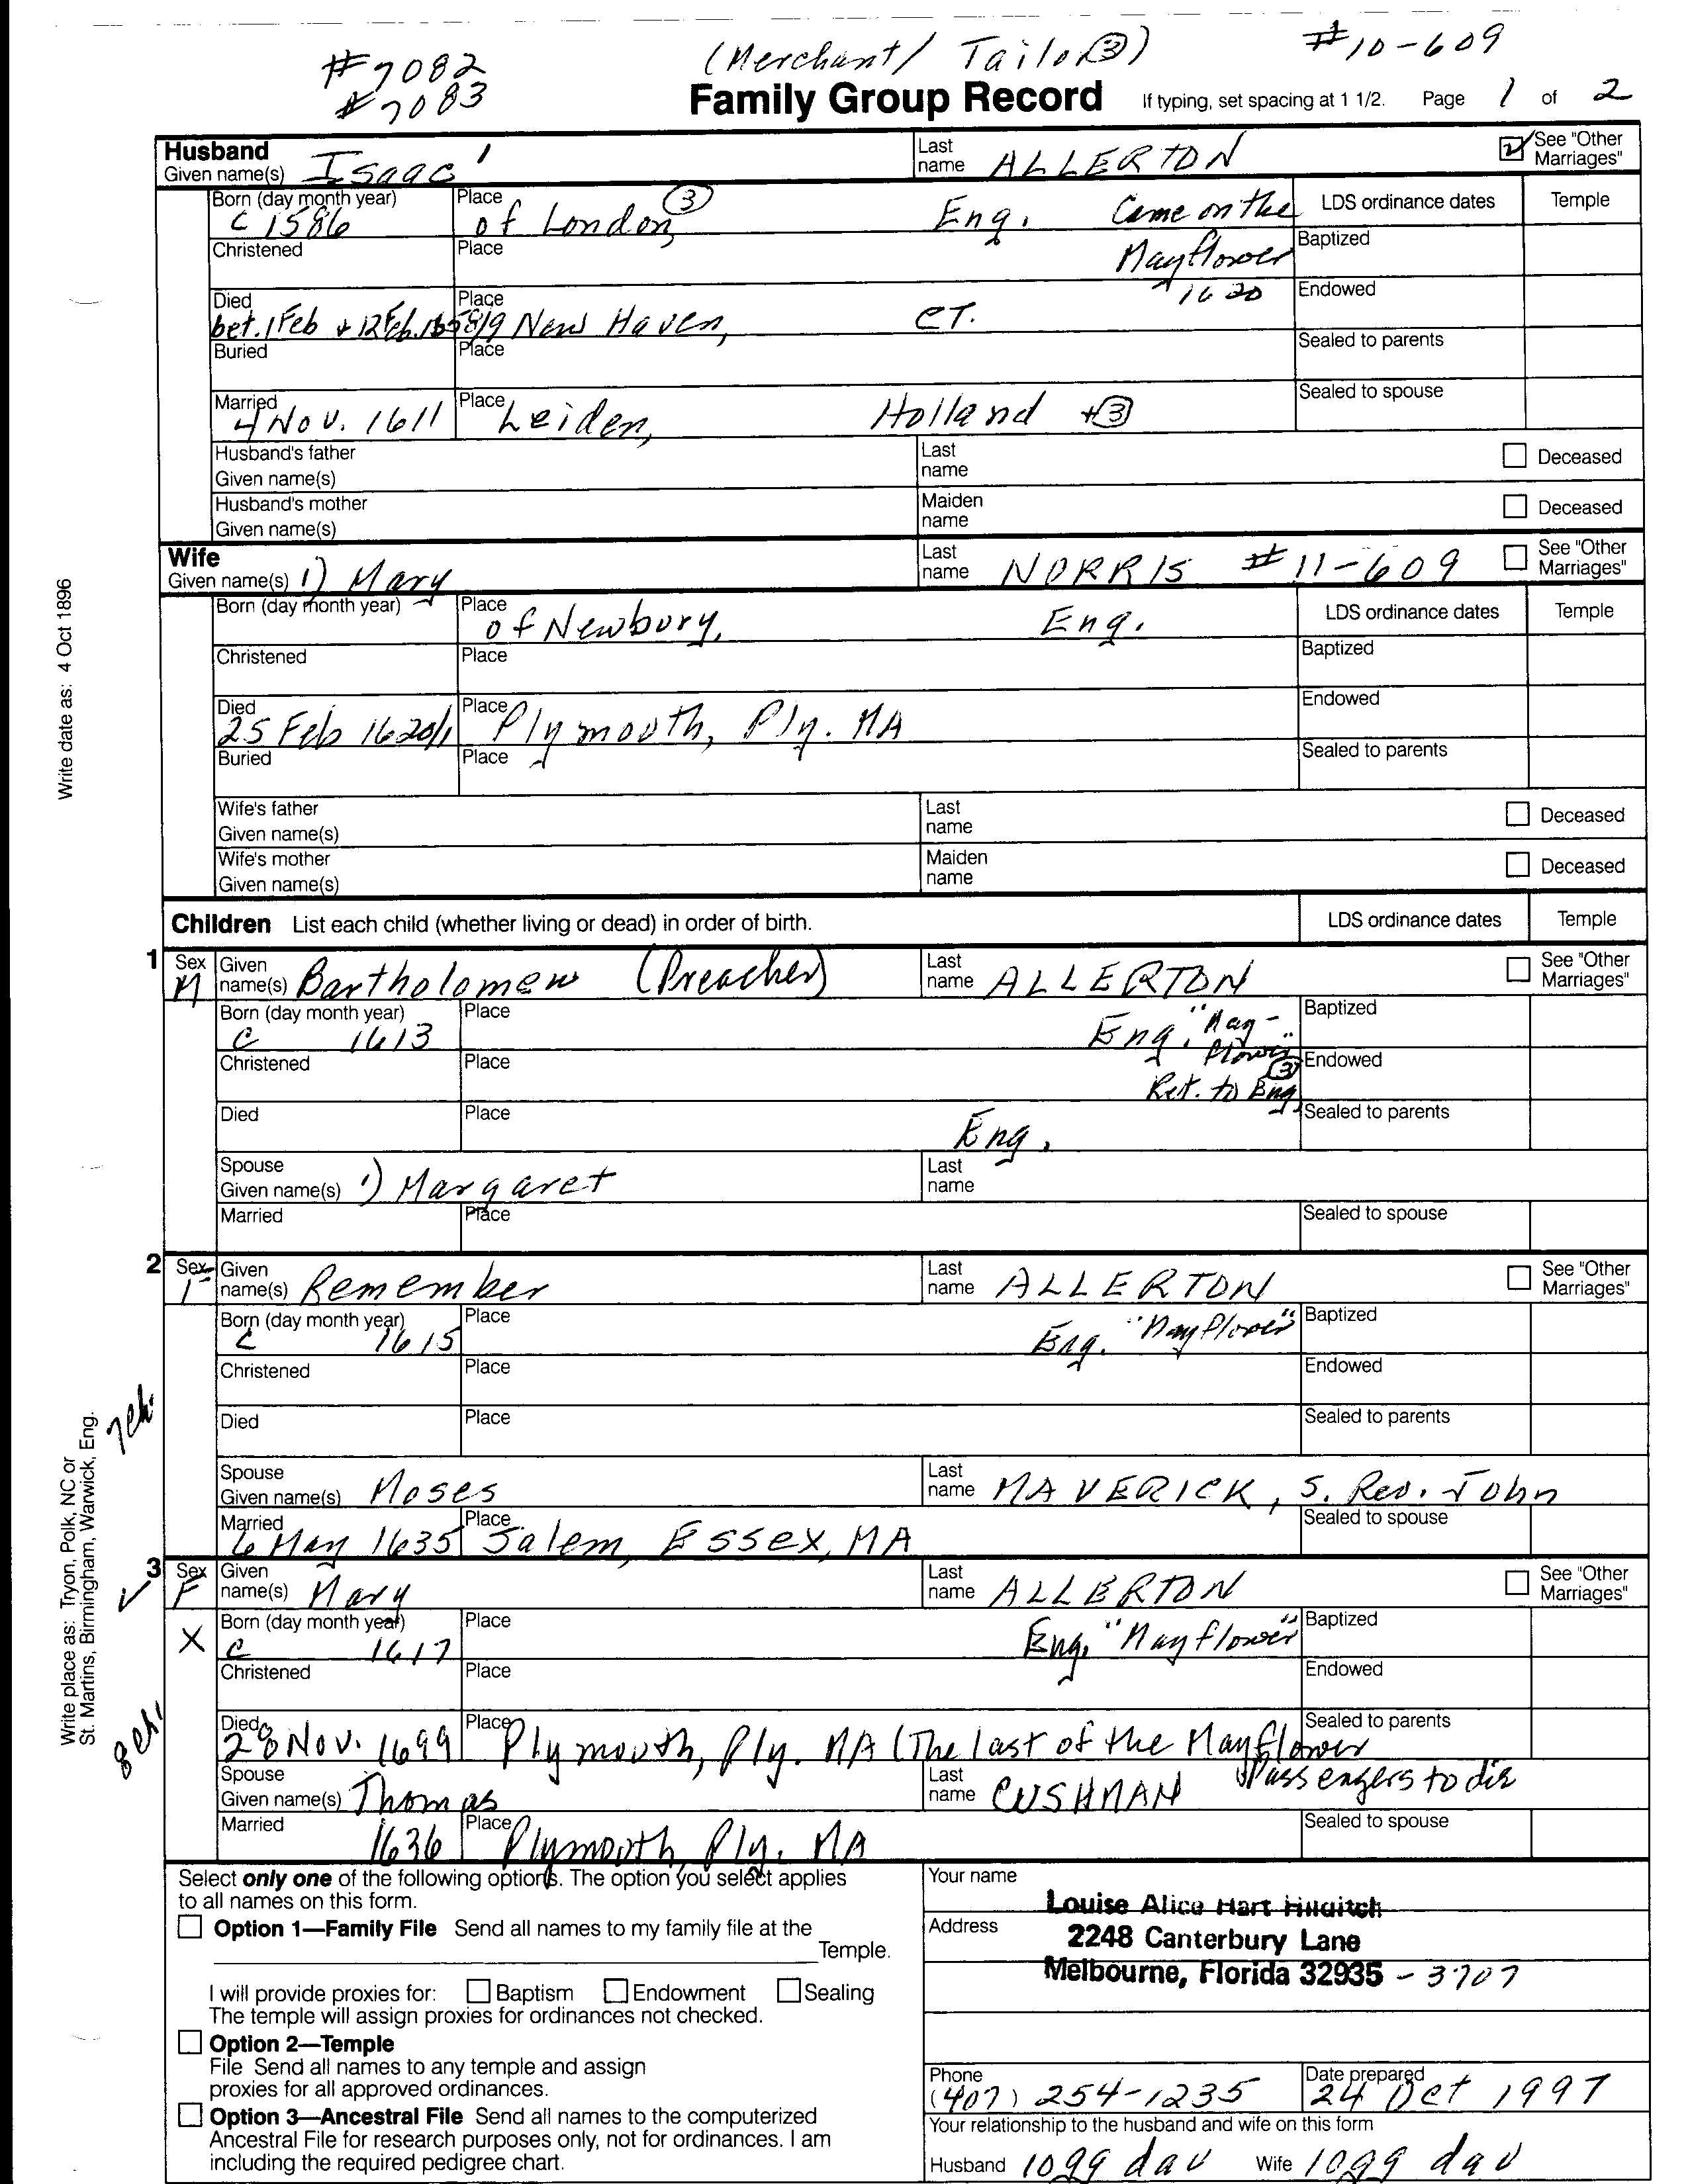 #7082 (Merchant/ Tailor ③) #10-609
#7083 Family Group Record If typing, set spacing at 1 1/2. Page 1 of 2
Husband
Given name(s) Isaac¹ Last name ALLERTON See "Other Marriages"
Born (day month year) Place LDS ordinance dates Temple
c 1586 of London, ③ Eng. Came on the
Christened Place Mayflower Baptized
1620 Endowed
Died Place
bet. 1 Feb + 12 Feb. 1658/9 New Haven, CT.
Buried Place Sealed to parents
Married Place Sealed to spouse
4 Nov. 1611 Leiden, Holland +③
Husband's father
Given name(s) Last name Deceased
Husband's mother
Given name(s) Maiden name Deceased
Wife
Given name(s) 1) Mary Last name NORRIS #11-609 See "Other Marriages"
Born (day month year) Place LDS ordinance dates Temple
of Newbury, Eng.
Christened Place Baptized
Died Place Endowed
25 Feb 1620/1 Plymouth, Ply. MA
Buried Place Sealed to parents
Wife's father
Given name(s) Last name Deceased
Wife's mother
Given name(s) Maiden name Deceased
Children List each child (whether living or dead) in order of birth. LDS ordinance dates Temple
1 Sex M Given name(s) Bartholomew (Preacher) Last name ALLERTON See "Other Marriages"
Born (day month year) Place Baptized
c 1613 Eng. "Mayflower"
Christened Place ③ Endowed
Ret. to Eng.
Died Place Eng. Sealed to parents
Spouse
Given name(s) 1) Margaret Last name
Married Place Sealed to spouse
2 Sex F Given name(s) Remember Last name ALLERTON See "Other Marriages"
Born (day month year) Place Baptized
c 1615 Eng. "Mayflower"
Christened Place Endowed
7ch.
Died Place Sealed to parents
Spouse
Given name(s) Moses Last name MAVERICK, S. Rev. John
Married Place Sealed to spouse
6 May 1635 Salem, Essex, MA
✓ 3 Sex F Given name(s) Mary Last name ALLERTON See "Other Marriages"
Born (day month year) Place Baptized
X c 1617 Eng. "Mayflower"
Christened Place Endowed
8ch.
Died Place Sealed to parents
28 Nov. 1699 Plymouth, Ply. MA (The last of the Mayflower
Passengers to die
Spouse
Given name(s) Thomas Last name CUSHMAN
Married Place Sealed to spouse
1636 Plymouth, Ply. MA
Write date as: 4 Oct 1896
Write place as: Tryon, Polk, NC or
St. Martins, Birmingham, Warwick, Eng.
Select only one of the following options. The option you select applies
to all names on this form.
Option 1—Family File Send all names to my family file at the
Temple.
I will provide proxies for: Baptism Endowment Sealing
The temple will assign proxies for ordinances not checked.
Option 2—Temple
File Send all names to any temple and assign
proxies for all approved ordinances.
Option 3—Ancestral File Send all names to the computerized
Ancestral File for research purposes only, not for ordinances. I am
including the required pedigree chart.
Your name
Louise Alice Hart Hilditch
Address 2248 Canterbury Lane
Melbourne, Florida 32935 - 3707
Phone Date prepared
(407) 254-1235 24 Oct 1997
Your relationship to the husband and wife on this form
Husband 10gg dau Wife 10gg dau